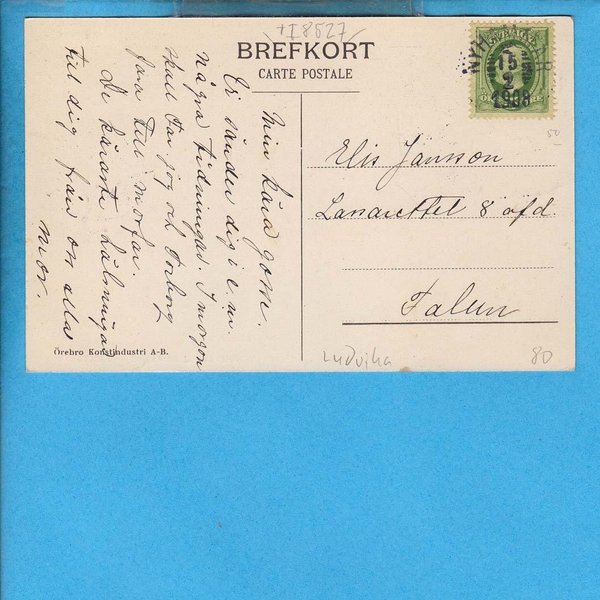 +I8527
BREFKORT
CARTE POSTALE
NYHAMMAR
15
2
1908
50
Min kära gosse.
Vi sänder dig i e.m.
några tidningar. I morgon
skall far jag och Torborg
fara till morfar.
De käraste hälsningar
till dig från oss alla
Mor.
Elis Jansson
Lasarettet 8 afd.
Falun
Örebro Konstindustri A-B.
Ludvika
80